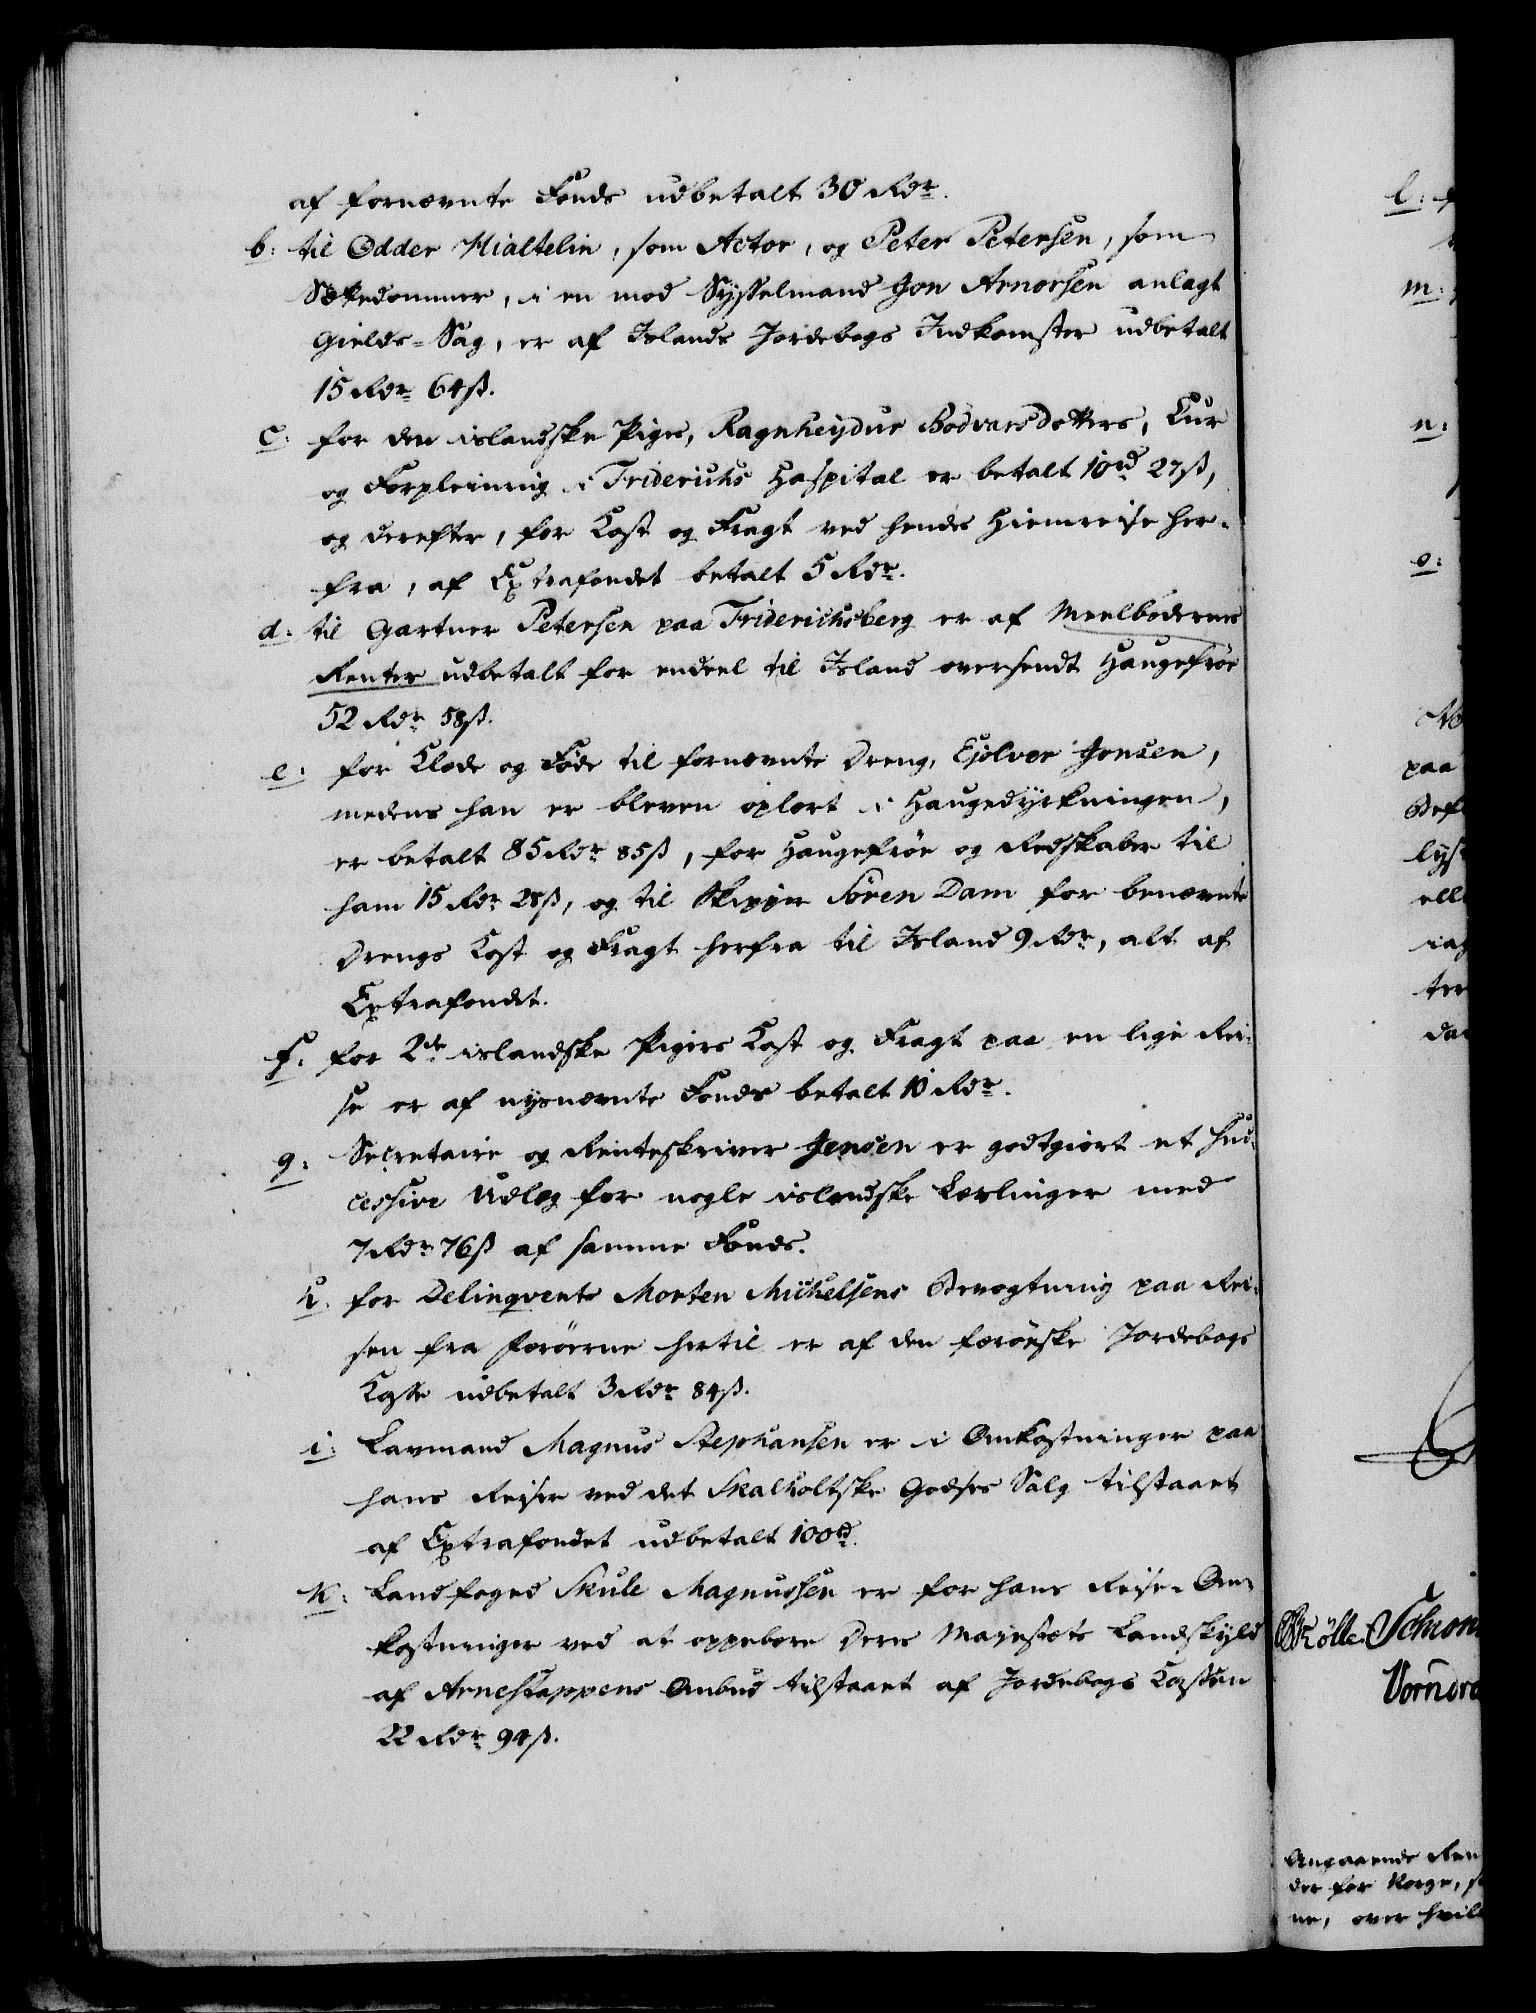 af fornævnte Fonds udbetalt 30 Rdr.
b: til Odder Hialtelin, som Actor, og Peter Petersen, som
Sættedommer, i en mod Sysselmand Jon Arnorsen anlagt
Gields-Sag, er af Islands Jordebogs Indkomster udbetalt
15 Rdr 64 ß.
c: for den islandske Piges, Ragnheijdur Bodvarsdotters, Cur
og Forpleining i Friderichs Hospital er betalt 10 rd 27 ß,
og derefter, for Kost og Fragt ved hendes Hiemreise her-
fra, af Extrafondet betalt 5 Rdr.
d: til Gartner Petersen paa Friderichsberg er af Meelbødernes
Renter udbetalt for endeel til Island oversendt Haugefrøe
52 Rdr 58 ß.
e: for Klæde og Føde til fornævnte Dreng, Ejolver Jonsen,
medens han er bleven oplært i Haugedyrkningen,
er betalt 85 Rdr 85 ß, for Haugefrøe og Redskaber til
ham 15 Rdr 28 ß, og til Skipper Sören Dam for benævnte
Drengs Kost og Fragt herfra til Island 9 Rdr, alt af
Extrafondet.
f: for 2de islandske Pigers Kost og Fragt paa en lige Rei-
se er af nysnævnte Fonds betalt 10 Rdr.
g: Secretaire og Renteskriver Jensen er godtgiort et suc-
cessive Udlæg for nogle islandske Lærlinger med
7 Rdr 76 ß af samme Fonds.
h: for Delinqvents Morten Michelsens Bevogtning paa Rei-
sen fra Færöerne hertil er af den færöeske Jordebogs
Casse udbetalt 3 Rdr 84 ß.
i: Laumand Magnus Stephansen er i Omkostninger paa
hans Reiser ved det Skalholtske Godses Salg tilstaaet
af Extrafondet udbetalt 100 rd.
k: Landfoged Skule Magnussen er for hans Reise-Om-
kostninger ved at oppebære Deres Majestæts Landskyld
af Arnestappens Ombud tilstaaet af Jordebogs Cassen
22 Rdr 94 ß.
l:
m:
n:
o:
paa
Bef
lys
elle
iag
ter
da
Schiøn
Angaaende Ren
der for Norge, s
ne, over hvil